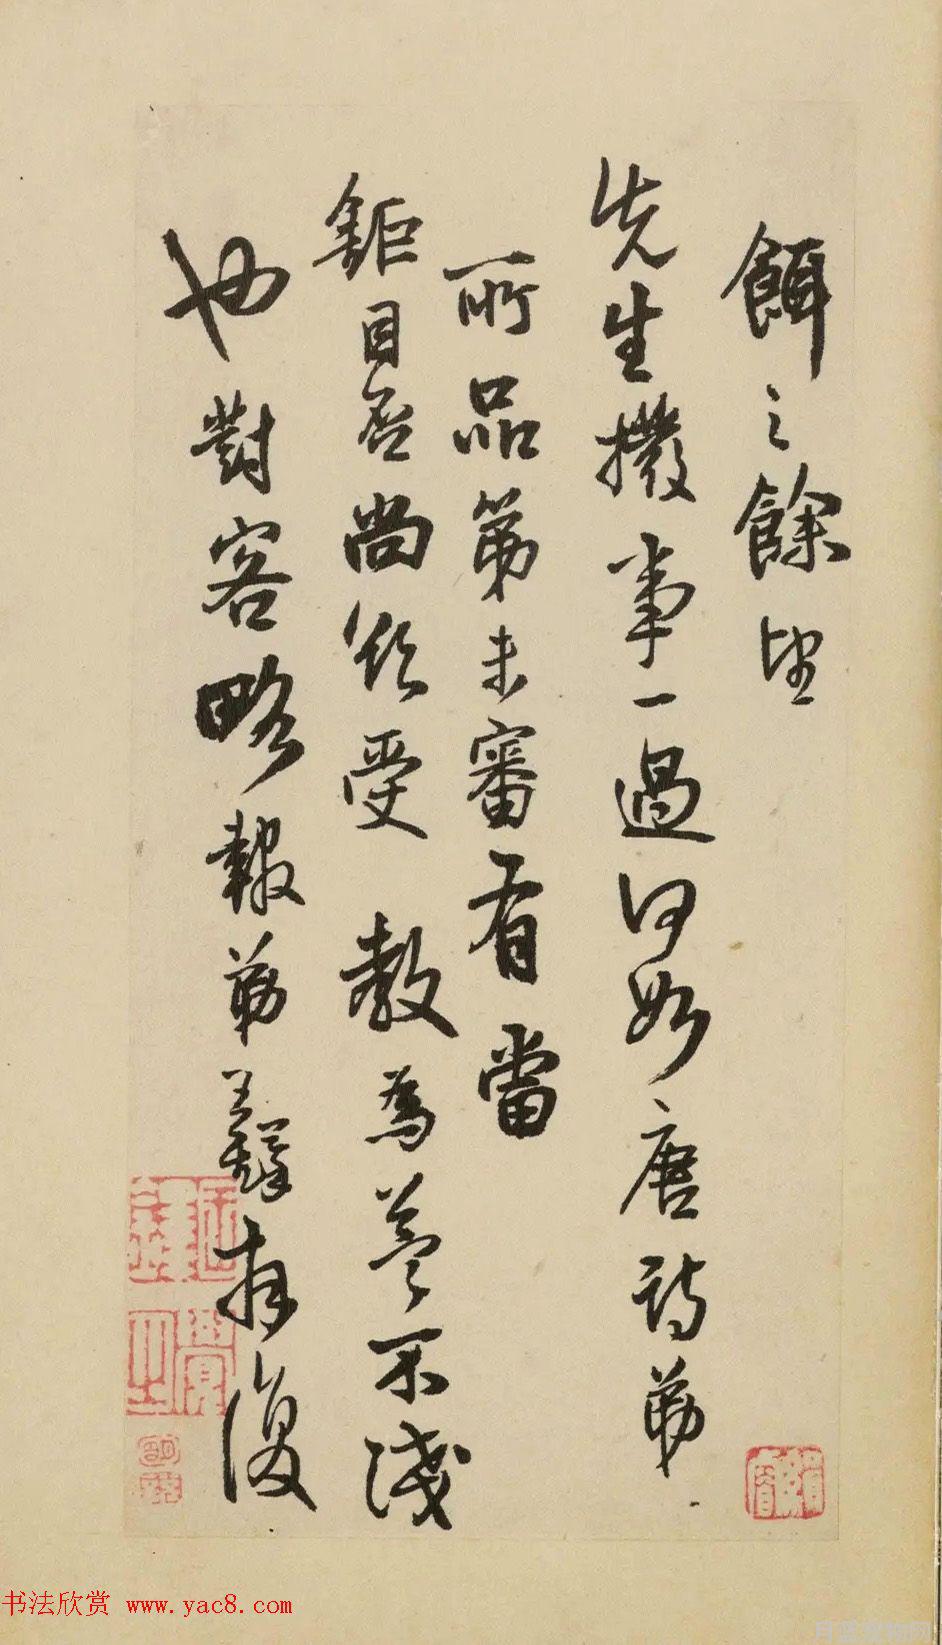 餌之餘望
先生撥事一過何如唐詩弟
所品第未審有當
鉅目否尚欲受 教為益不淺
也對客略報弟再復
书法欣赏 www.yac8.com